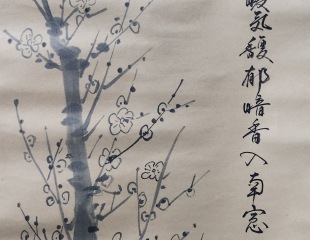 暖氣馥郁暗香入南窓